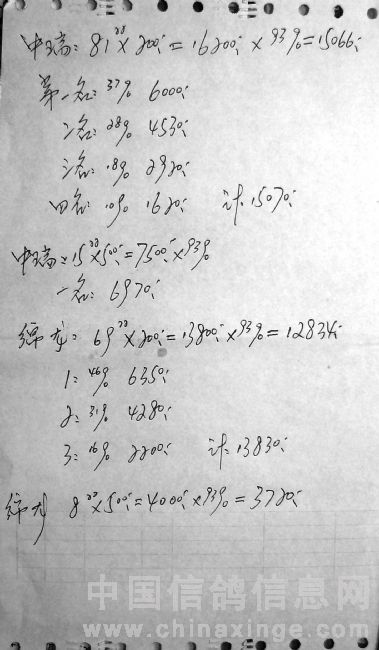 中瑞: 81羽×200元=16200元×93%=15066元
第一名: 37% 6000元
二名: 28% 4530元
三名: 18% 2920元
四名: 10% 1620元 计15070元
中瑞: 15羽×500元=7500元×93%
一名: 6970元
绵龙: 69羽×200元=13800元×93%=12834元
1: 46% 6350元
2: 31% 4280元
3: 16% 2200元 计13830元
绵龙 8羽×500元=4000元×93%=3720元
中国信鸽信息网
www.chinaxinge.com